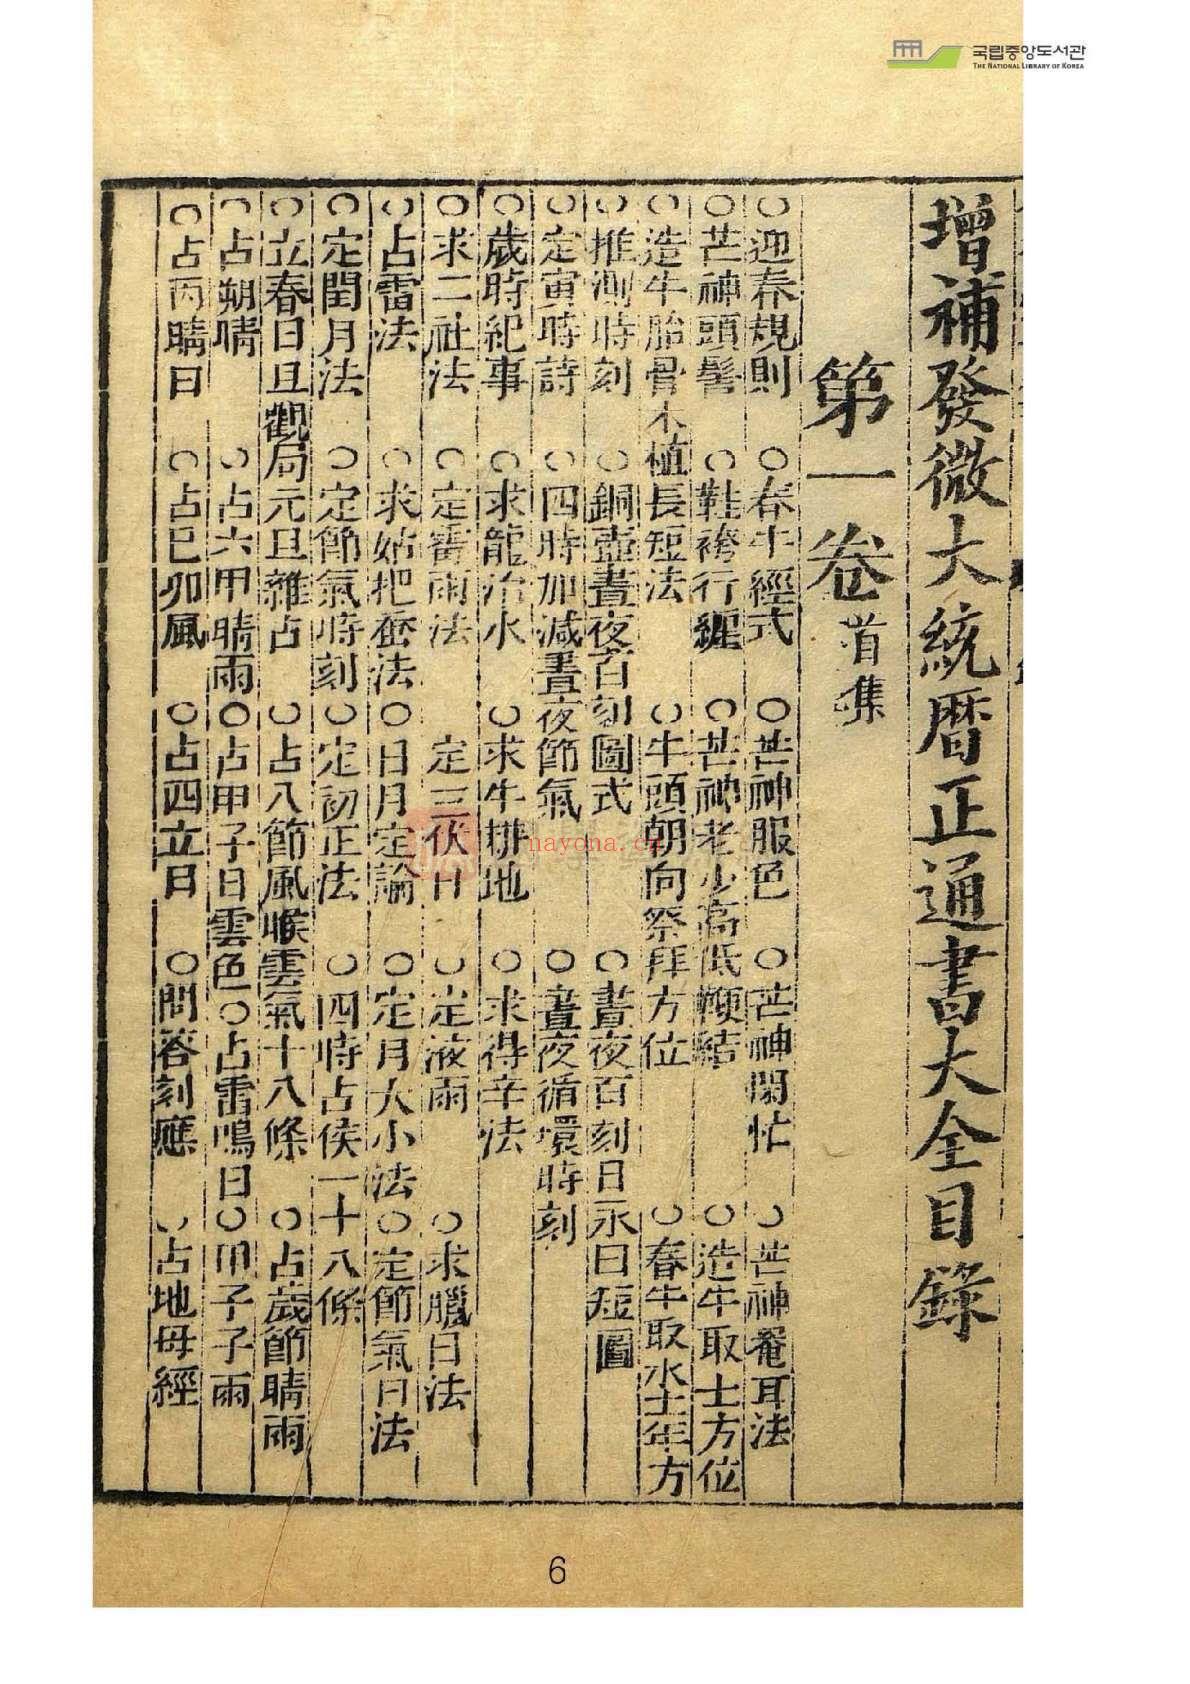 국립중앙도서관
THE NATIONAL LIBRARY OF KOREA
增補發微大統曆正通書大全目錄
第一卷 首集
○迎春規則 ○春牛經式 ○芒神服色 ○芒神閑忙 ○芒神罨耳法
○芒神頭髻 ○鞋袴行纏 ○芒神老少高低鞭結 ○造牛取土方位
○造牛胎骨木植長短法 ○牛頭朝向祭拜方位 ○春牛取水土年方
○推測時刻 ○銅壺晝夜百刻圖式 ○晝夜百刻日永日短圖
○定寅時詩 ○四時加減晝夜節氣 ○晝夜循環時刻
○歲時紀事 ○求龍治水 ○求牛耕地 ○求得辛法
○求二社法 ○定霉雨法 定三伏日 ○定液雨 ○求臘日法
○占雷法 ○求姑把蚕法 ○日月定論 ○定月大小法 ○定節氣日法
○定閏月法 ○定節氣時刻 ○定初正法 ○四時占候一十八條
○立春日且觀局元旦雜占 ○占八節風喉雲氣十八條 ○占歲節晴雨
○占朔晴 ○占六甲晴雨 ○占甲子日雲色 ○占雷鳴日 ○甲子子雨
○占丙晴日 ○占巳卯風 ○占四立日 ○問答刻應 ○占地母經
nayona.cn
6